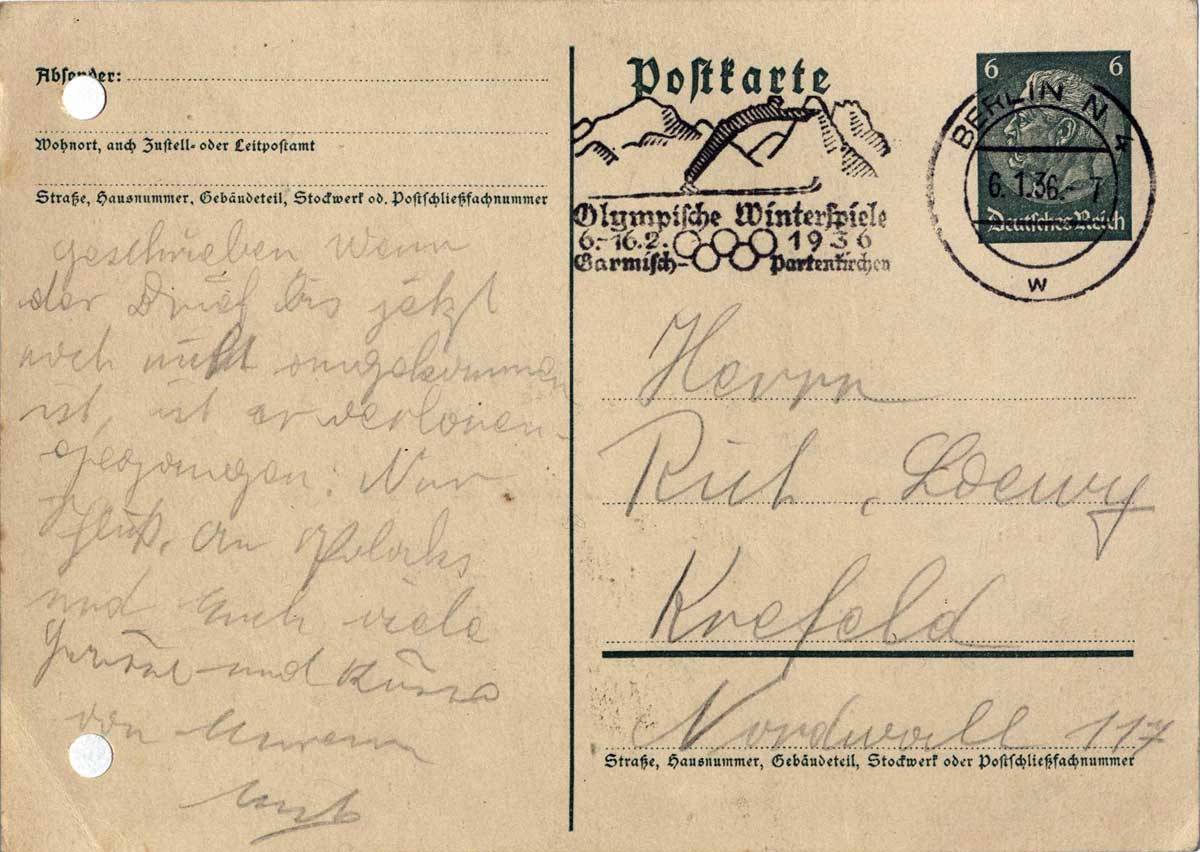 Absender:
Wohnort, auch Zustell- oder Leitpostamt
Straße, Hausnummer, Gebäudeteil, Stockwerk od. Postschließfachnummer
geschrieben wenn
der Brief bis jetzt
noch nicht angekommen
ist, ist er verloren-
gegangen. Nun
Schluß. An Polacks
und Euch viele
Grüsse und Küsse
von Eurem
Postkarte
6 6
Deutsches Reich
BERLIN N 4
6.1.36.-7
w
Olympische Winterspiele
6.-16.2. 1936
Garmisch- Partenkirchen
Herrn
Rich. Loewy
Krefeld
Nordwall 117
Straße, Hausnummer, Gebäudeteil, Stockwerk oder Postschließfachnummer